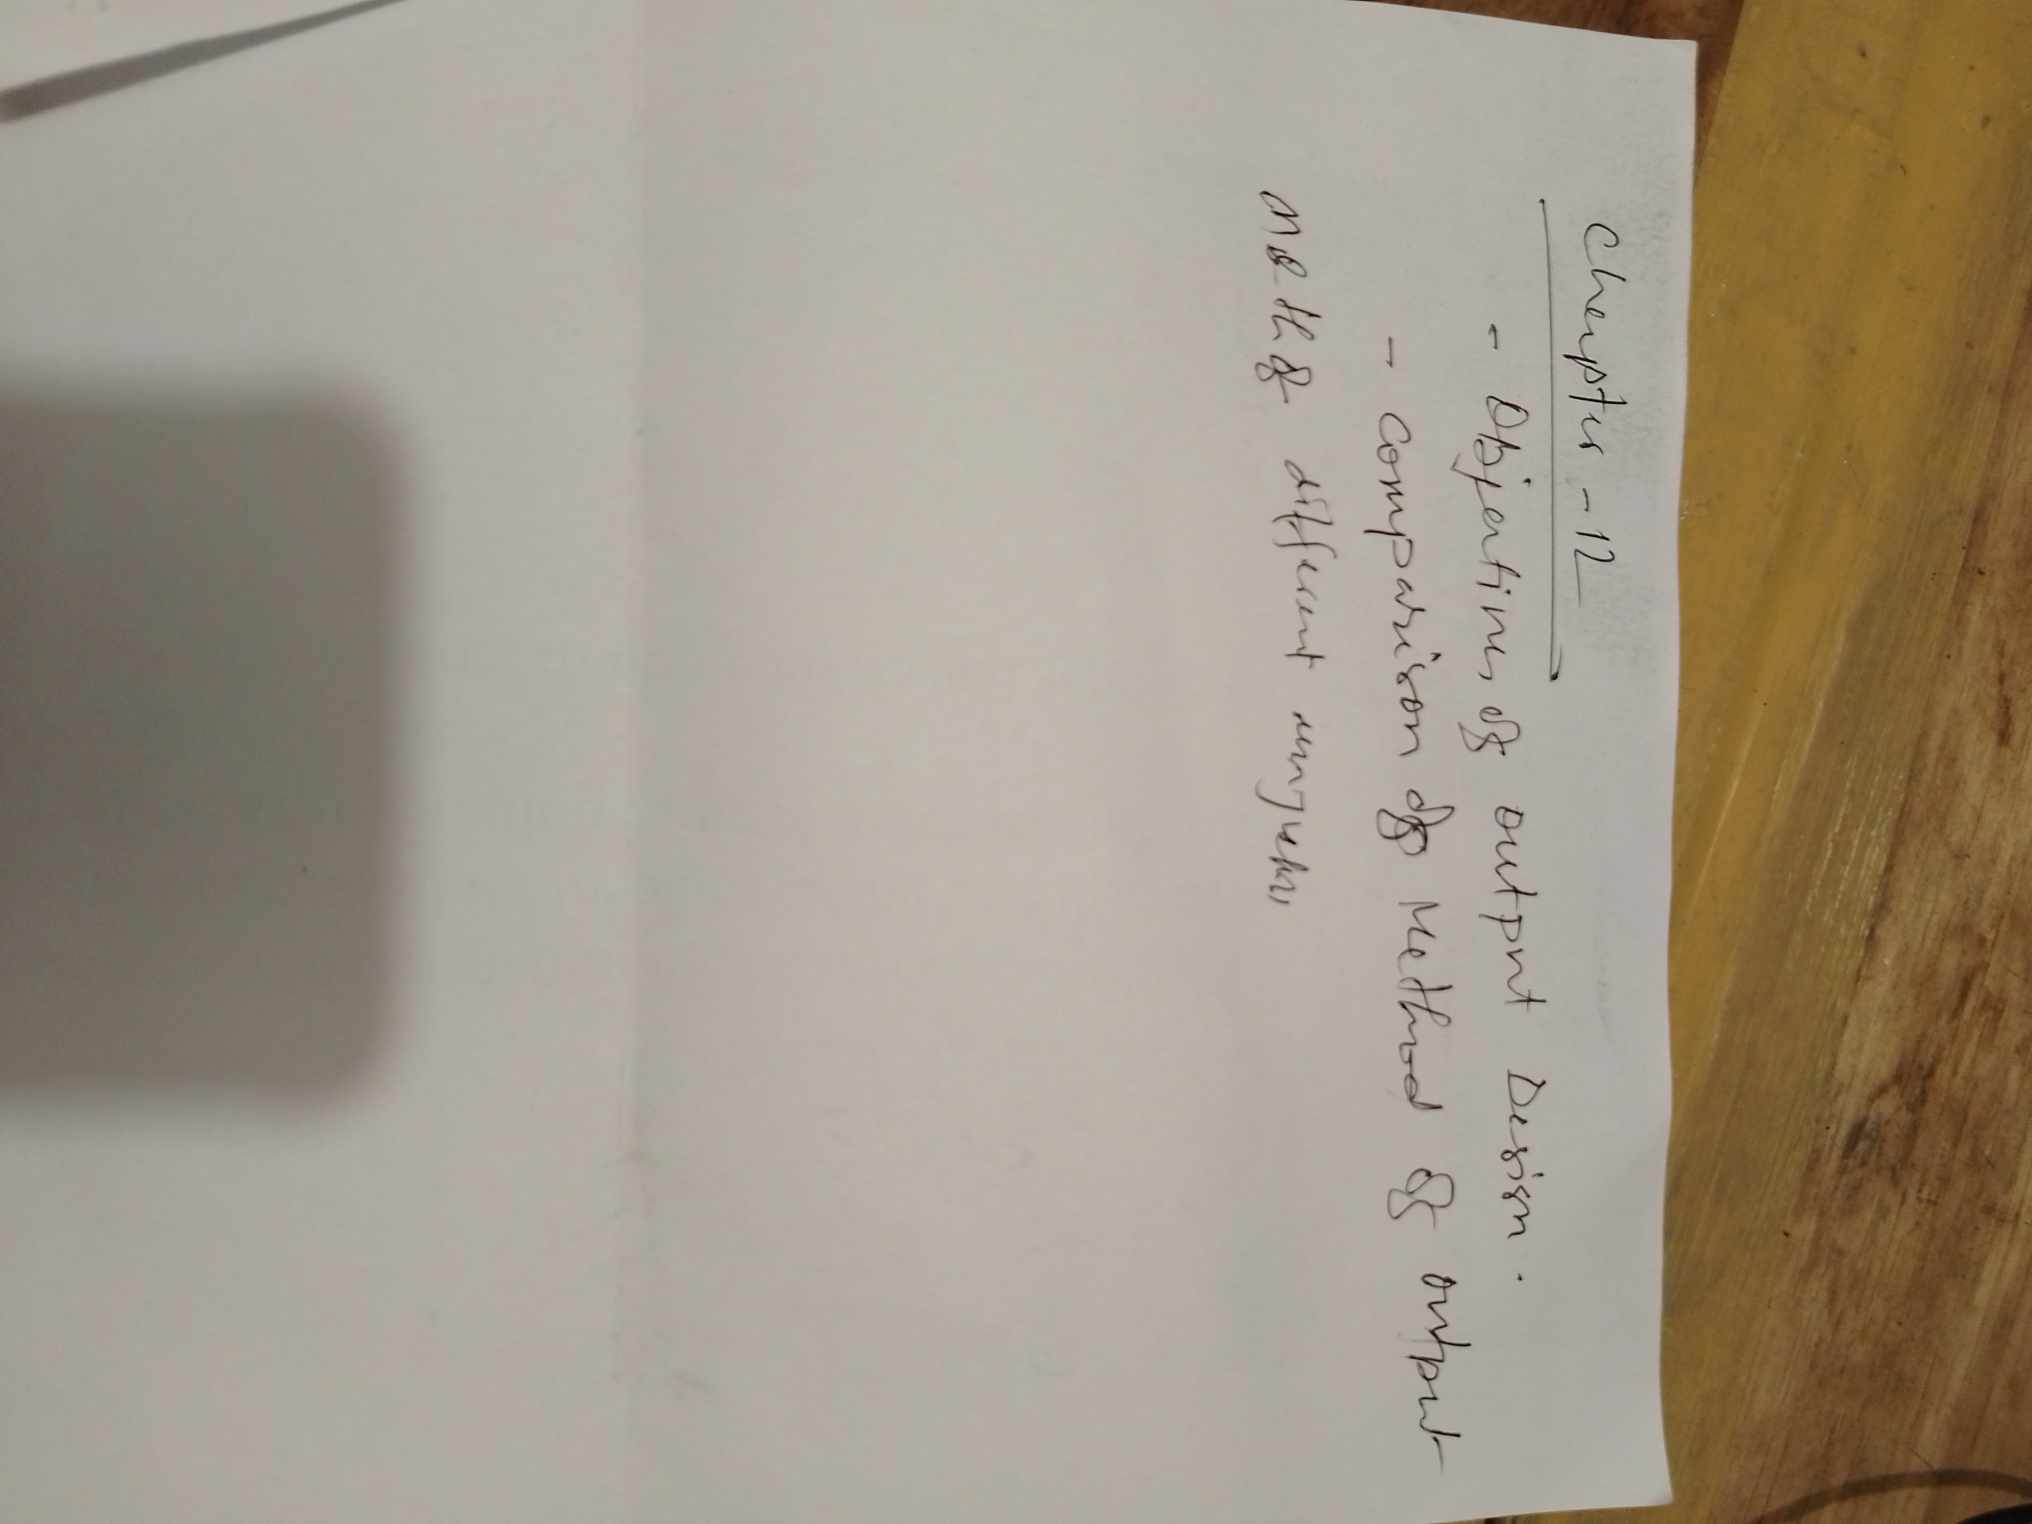 Chapter - 12
- Objectives of output Design.
- Comparison of Method of output
different